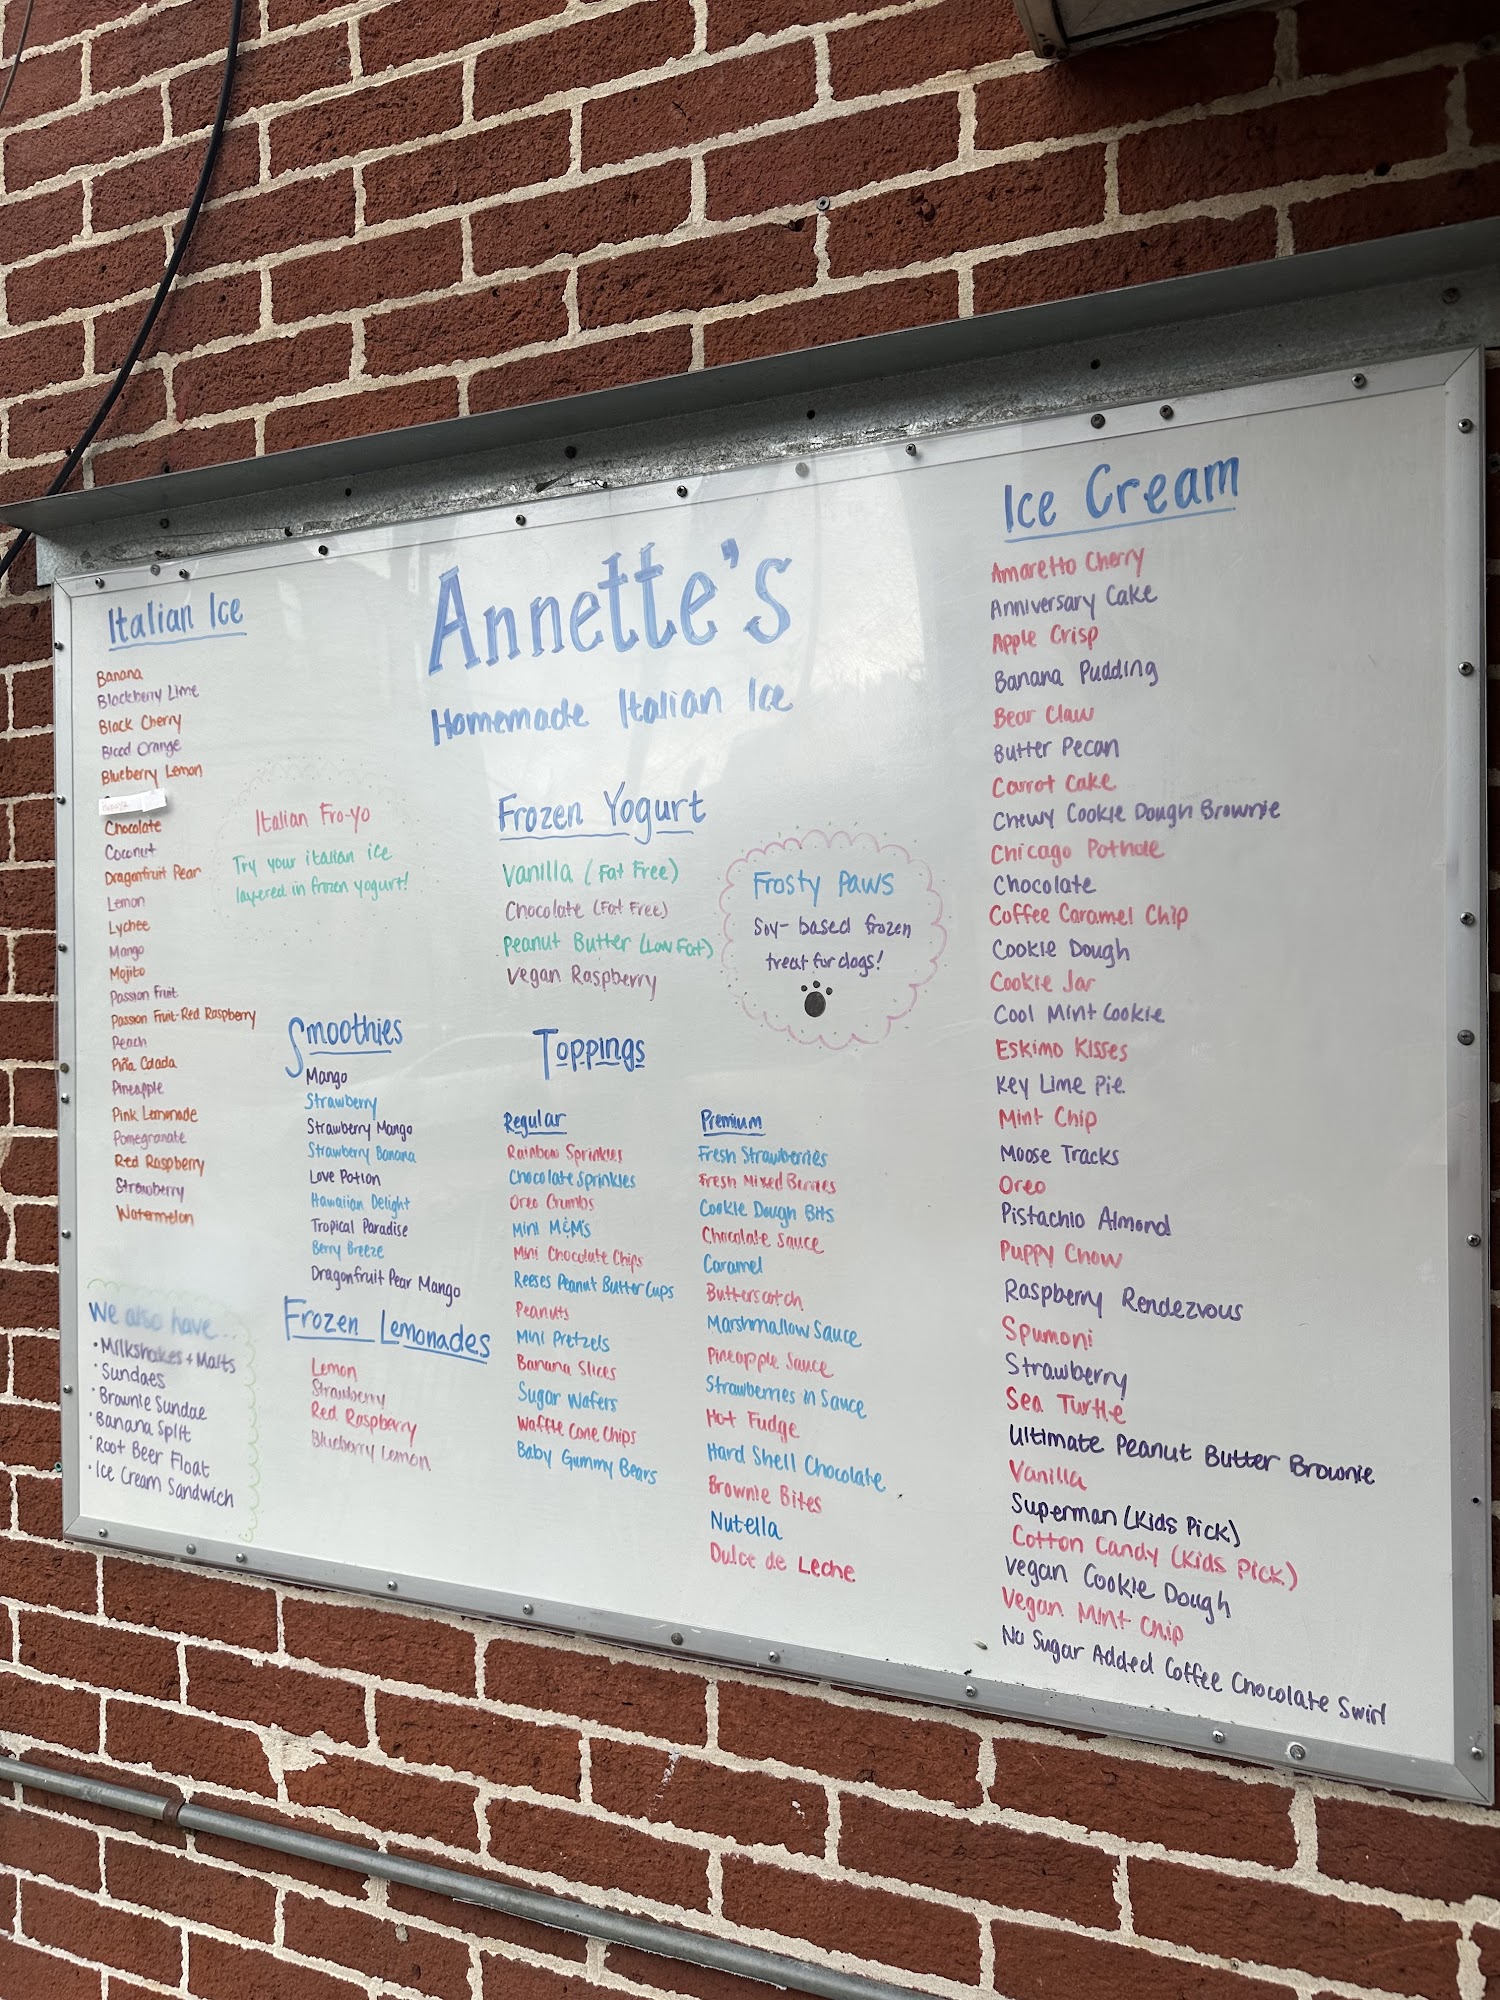 Annette's
Homemade Italian Ice
Italian Ice
Banana
Blackberry Lime
Black Cherry
Blood Orange
Blueberry Lemon
Chocolate
Coconut
Dragonfruit Pear
Lemon
Lychee
Mango
Mojito
Passion Fruit
Passion Fruit-Red Raspberry
Peach
Piña Colada
Pineapple
Pink Lemonade
Pomegranate
Red Raspberry
Strawberry
Watermelon
We also have...
• Milkshakes + Malts
• Sundaes
• Brownie Sundae
• Banana Split
• Root Beer Float
• Ice Cream Sandwich
Italian Fro-yo
Try your italian ice
layered in frozen yogurt!
Smoothies
Mango
Strawberry
Strawberry Mango
Strawberry Banana
Love Potion
Hawaiian Delight
Tropical Paradise
Berry Breeze
Dragonfruit Pear Mango
Frozen Lemonades
Lemon
Strawberry
Red Raspberry
Blueberry Lemon
Frozen Yogurt
Vanilla (Fat Free)
Chocolate (Fat Free)
Peanut Butter (Low Fat)
Vegan Raspberry
Frosty Paws
Soy-based frozen
treat for dogs!
Toppings
Regular
Rainbow Sprinkles
Chocolate Sprinkles
Oreo Crumbs
Mini M&M's
Mini Chocolate Chips
Reeses Peanut Butter Cups
Peanuts
Mini Pretzels
Banana Slices
Sugar Wafers
Waffle Cone Chips
Baby Gummy Bears
Premium
Fresh Strawberries
Fresh Mixed Berries
Cookie Dough Bits
Chocolate Sauce
Caramel
Butterscotch
Marshmallow Sauce
Pineapple Sauce
Strawberries in Sauce
Hot Fudge
Hard Shell Chocolate
Brownie Bites
Nutella
Dulce de Leche
Ice Cream
Amaretto Cherry
Anniversary Cake
Apple Crisp
Banana Pudding
Bear Claw
Butter Pecan
Carrot Cake
Chewy Cookie Dough Brownie
Chicago Pothole
Chocolate
Coffee Caramel Chip
Cookie Dough
Cookie Jar
Cool Mint Cookie
Eskimo Kisses
Key Lime Pie
Mint Chip
Moose Tracks
Oreo
Pistachio Almond
Puppy Chow
Raspberry Rendezvous
Spumoni
Strawberry
Sea Turtle
Ultimate Peanut Butter Brownie
Vanilla
Superman (Kids Pick)
Cotton Candy (Kids Pick)
Vegan Cookie Dough
Vegan Mint Chip
No Sugar Added Coffee Chocolate Swirl